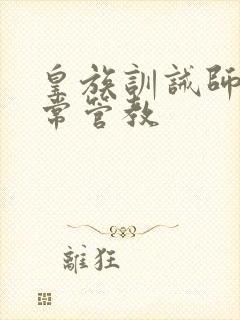 皇族訓誡師
常管教
離狂